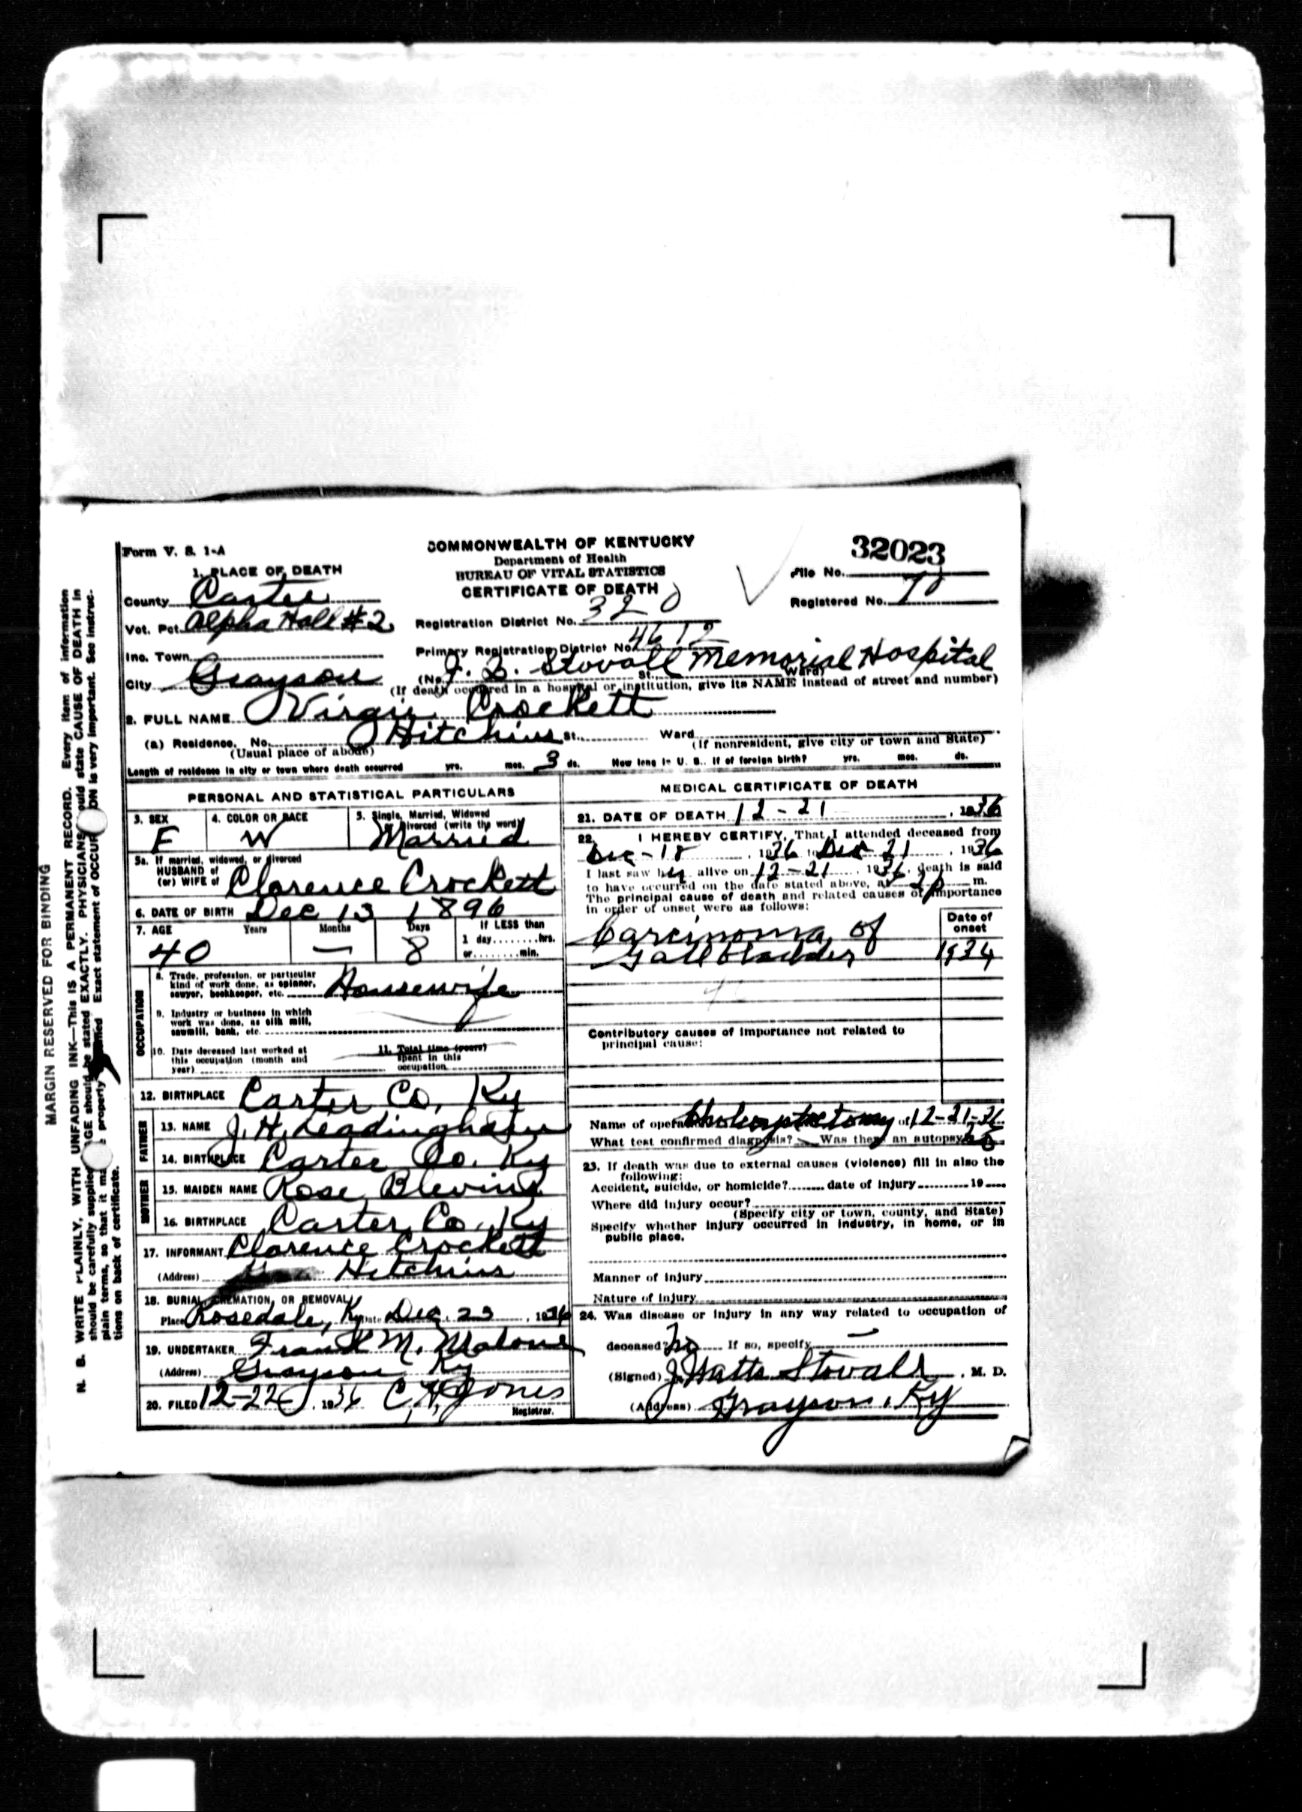 Form V. S. 1-A
COMMONWEALTH OF KENTUCKY
Department of Health
BUREAU OF VITAL STATISTICS
CERTIFICATE OF DEATH
32023
File No.
Registered No. 70
1. PLACE OF DEATH
County Carter
Vot. Pct. Alpha Hall #2
Inc. Town
City Grayson
Registration District No. 320
Primary Registration District No. 4612
(No. J. Q. Stovall Memorial Hospital St. Ward)
(If death occurred in a hospital or institution, give its NAME instead of street and number)
2. FULL NAME Virgie Crockett
(a) Residence. No. Hitchins St. Ward
(Usual place of abode) (If nonresident, give city or town and State)
Length of residence in city or town where death occurred yrs. mos. 3 ds. How long in U. S., if of foreign birth? yrs. mos. ds.
PERSONAL AND STATISTICAL PARTICULARS
3. SEX
F
4. COLOR OR RACE
W
5. Single, Married, Widowed
Divorced (write the word)
Married
5a. If married, widowed, or divorced
HUSBAND of
(or) WIFE of Clarence Crockett
6. DATE OF BIRTH Dec 13 1896
7. AGE Years Months Days If LESS than
1 day........hrs.
or........min.
40 — 8
OCCUPATION
8. Trade, profession, or particular
kind of work done, as spinner,
sawyer, bookkeeper, etc. Housewife
9. Industry or business in which
work was done, as silk mill,
sawmill, bank, etc.
10. Date deceased last worked at
this occupation (month and
year)
11. Total time (years)
spent in this
occupation
12. BIRTHPLACE Carter Co, Ky
FATHER
13. NAME J. H. Leadingham
14. BIRTHPLACE Carter Co. Ky
MOTHER
15. MAIDEN NAME Rose Blevins
16. BIRTHPLACE Carter Co. Ky
17. INFORMANT Clarence Crockett
(Address) Hitchins
18. BURIAL, CREMATION, OR REMOVAL
Place Rosedale, Ky Date Dec. 23, 1936
19. UNDERTAKER Frank M. Malone
(Address) Grayson Ky
20. FILED 12-22, 1936 C. H. Jones
Registrar.
MEDICAL CERTIFICATE OF DEATH
21. DATE OF DEATH 12-21, 1936
22. I HEREBY CERTIFY, That I attended deceased from
Dec-18, 1936 to Dec 21, 1936
I last saw her alive on 12-21, 1936, death is said
to have occurred on the date stated above, at 2p m.
The principal cause of death and related causes of importance
in order of onset were as follows:
Date of
onset
Carcinoma of
Gall bladder 1934
Contributory causes of importance not related to
principal cause:
Name of operation of 12-21-36
What test confirmed diagnosis? Was there an autopsy? no
23. If death was due to external causes (violence) fill in also the
following:
Accident, suicide, or homicide?........ date of injury............19....
Where did injury occur?
(Specify city or town, county, and State)
Specify whether injury occurred in industry, in home, or in
public place.
Manner of injury
Nature of injury
24. Was disease or injury in any way related to occupation of
deceased? No If so, specify —
(Signed) J. Watts Stovall, M. D.
(Address) Grayson, Ky
MARGIN RESERVED FOR BINDING
N. B. WRITE PLAINLY, WITH UNFADING INK—This IS A PERMANENT RECORD. Every item of information
should be carefully supplied. AGE should be stated EXACTLY. PHYSICIANS should state CAUSE OF DEATH in
plain terms, so that it may be properly classified. Exact statement of OCCUPATION is very important. See instruc-
tions on back of certificate.